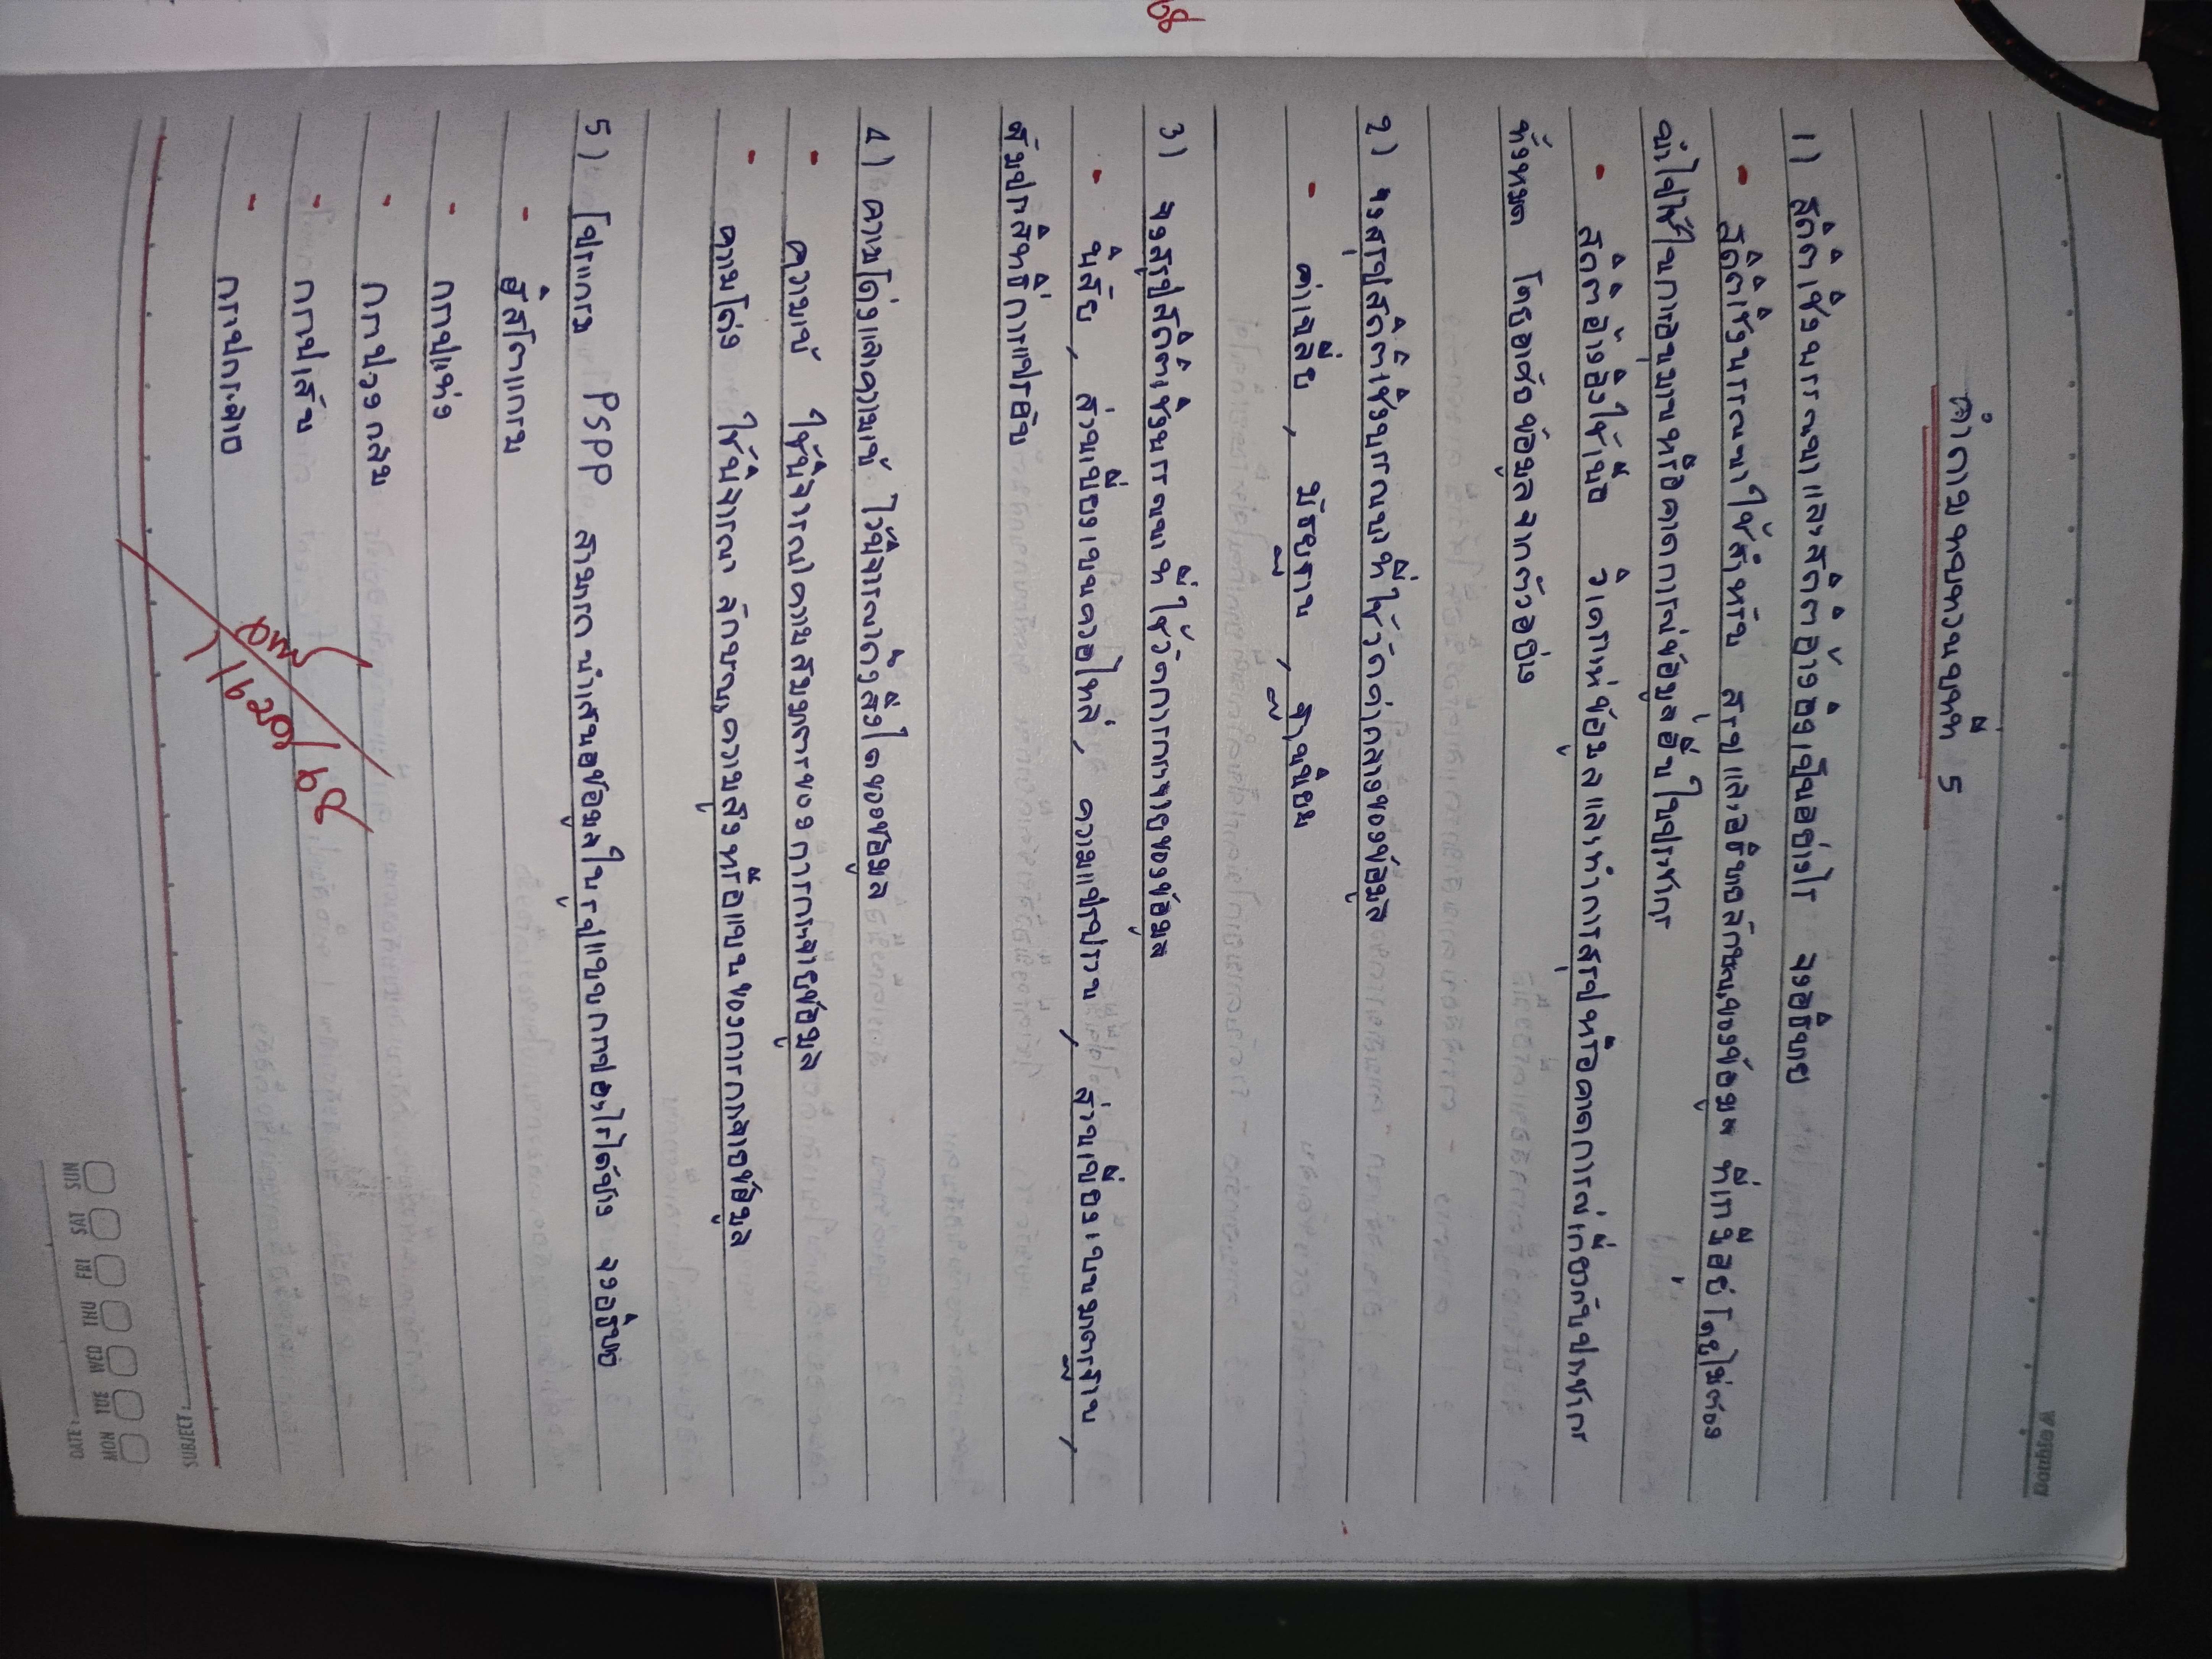 Double A
คำถามทบทวนบทที่ 5
1) สถิติเชิงบรรณนา และสถิติอ้างอิงเป็นอย่างไร จงอธิบาย
- สถิติเชิงบรรณนาใช้สำหรับ สรุปและอธิบายลักษณะของข้อมูล ที่เรามีอยู่โดยไม่ต้อง
นำไปใช้ในการอนุมานหรือคาดการณ์ข้อมูลอื่นในประชากร
- สถิติอ้างอิงใช้เพื่อ วิเคราะห์ข้อมูลและทำการสรุปหรือคาดการณ์เกี่ยวกับประชากร
ทั้งหมด โดยอาศัยข้อมูลจากตัวอย่าง
2) จงสรุปสถิติเชิงบรรณนาที่ใช้วัดค่ากลางของข้อมูล
- ค่าเฉลี่ย , มัธยฐาน , ฐานนิยม
3) จงสรุปสถิติเชิงบรรณนาที่ใช้วัดการกระจายของข้อมูล
- พิสัย , ส่วนเบี่ยงเบนควอไทล์ , ความแปรปรวน , ส่วนเบี่ยงเบนมาตรฐาน ,
สัมประสิทธิ์การแปรผัน
4) ความโด่งและความเบ้ ใช้พิจารณาในเรื่องใดของข้อมูล
- ความเบ้ ใช้พิจารณาความสมมาตรของการกระจายข้อมูล
- ความโด่ง ใช้พิจารณา ลักษณะความสูงหรือแบนของการกระจายข้อมูล
5) โปรแกรม PSPP สามารถนำเสนอข้อมูลในรูปแบบกราฟอะไรได้บ้าง จงอธิบาย
- ฮิสโตแกรม
- กราฟแท่ง
- กราฟวงกลม
- กราฟเส้น
- กราฟกระจาย
SUBJECT:
DATE:
MON TUE WED THU FRI SAT SUN